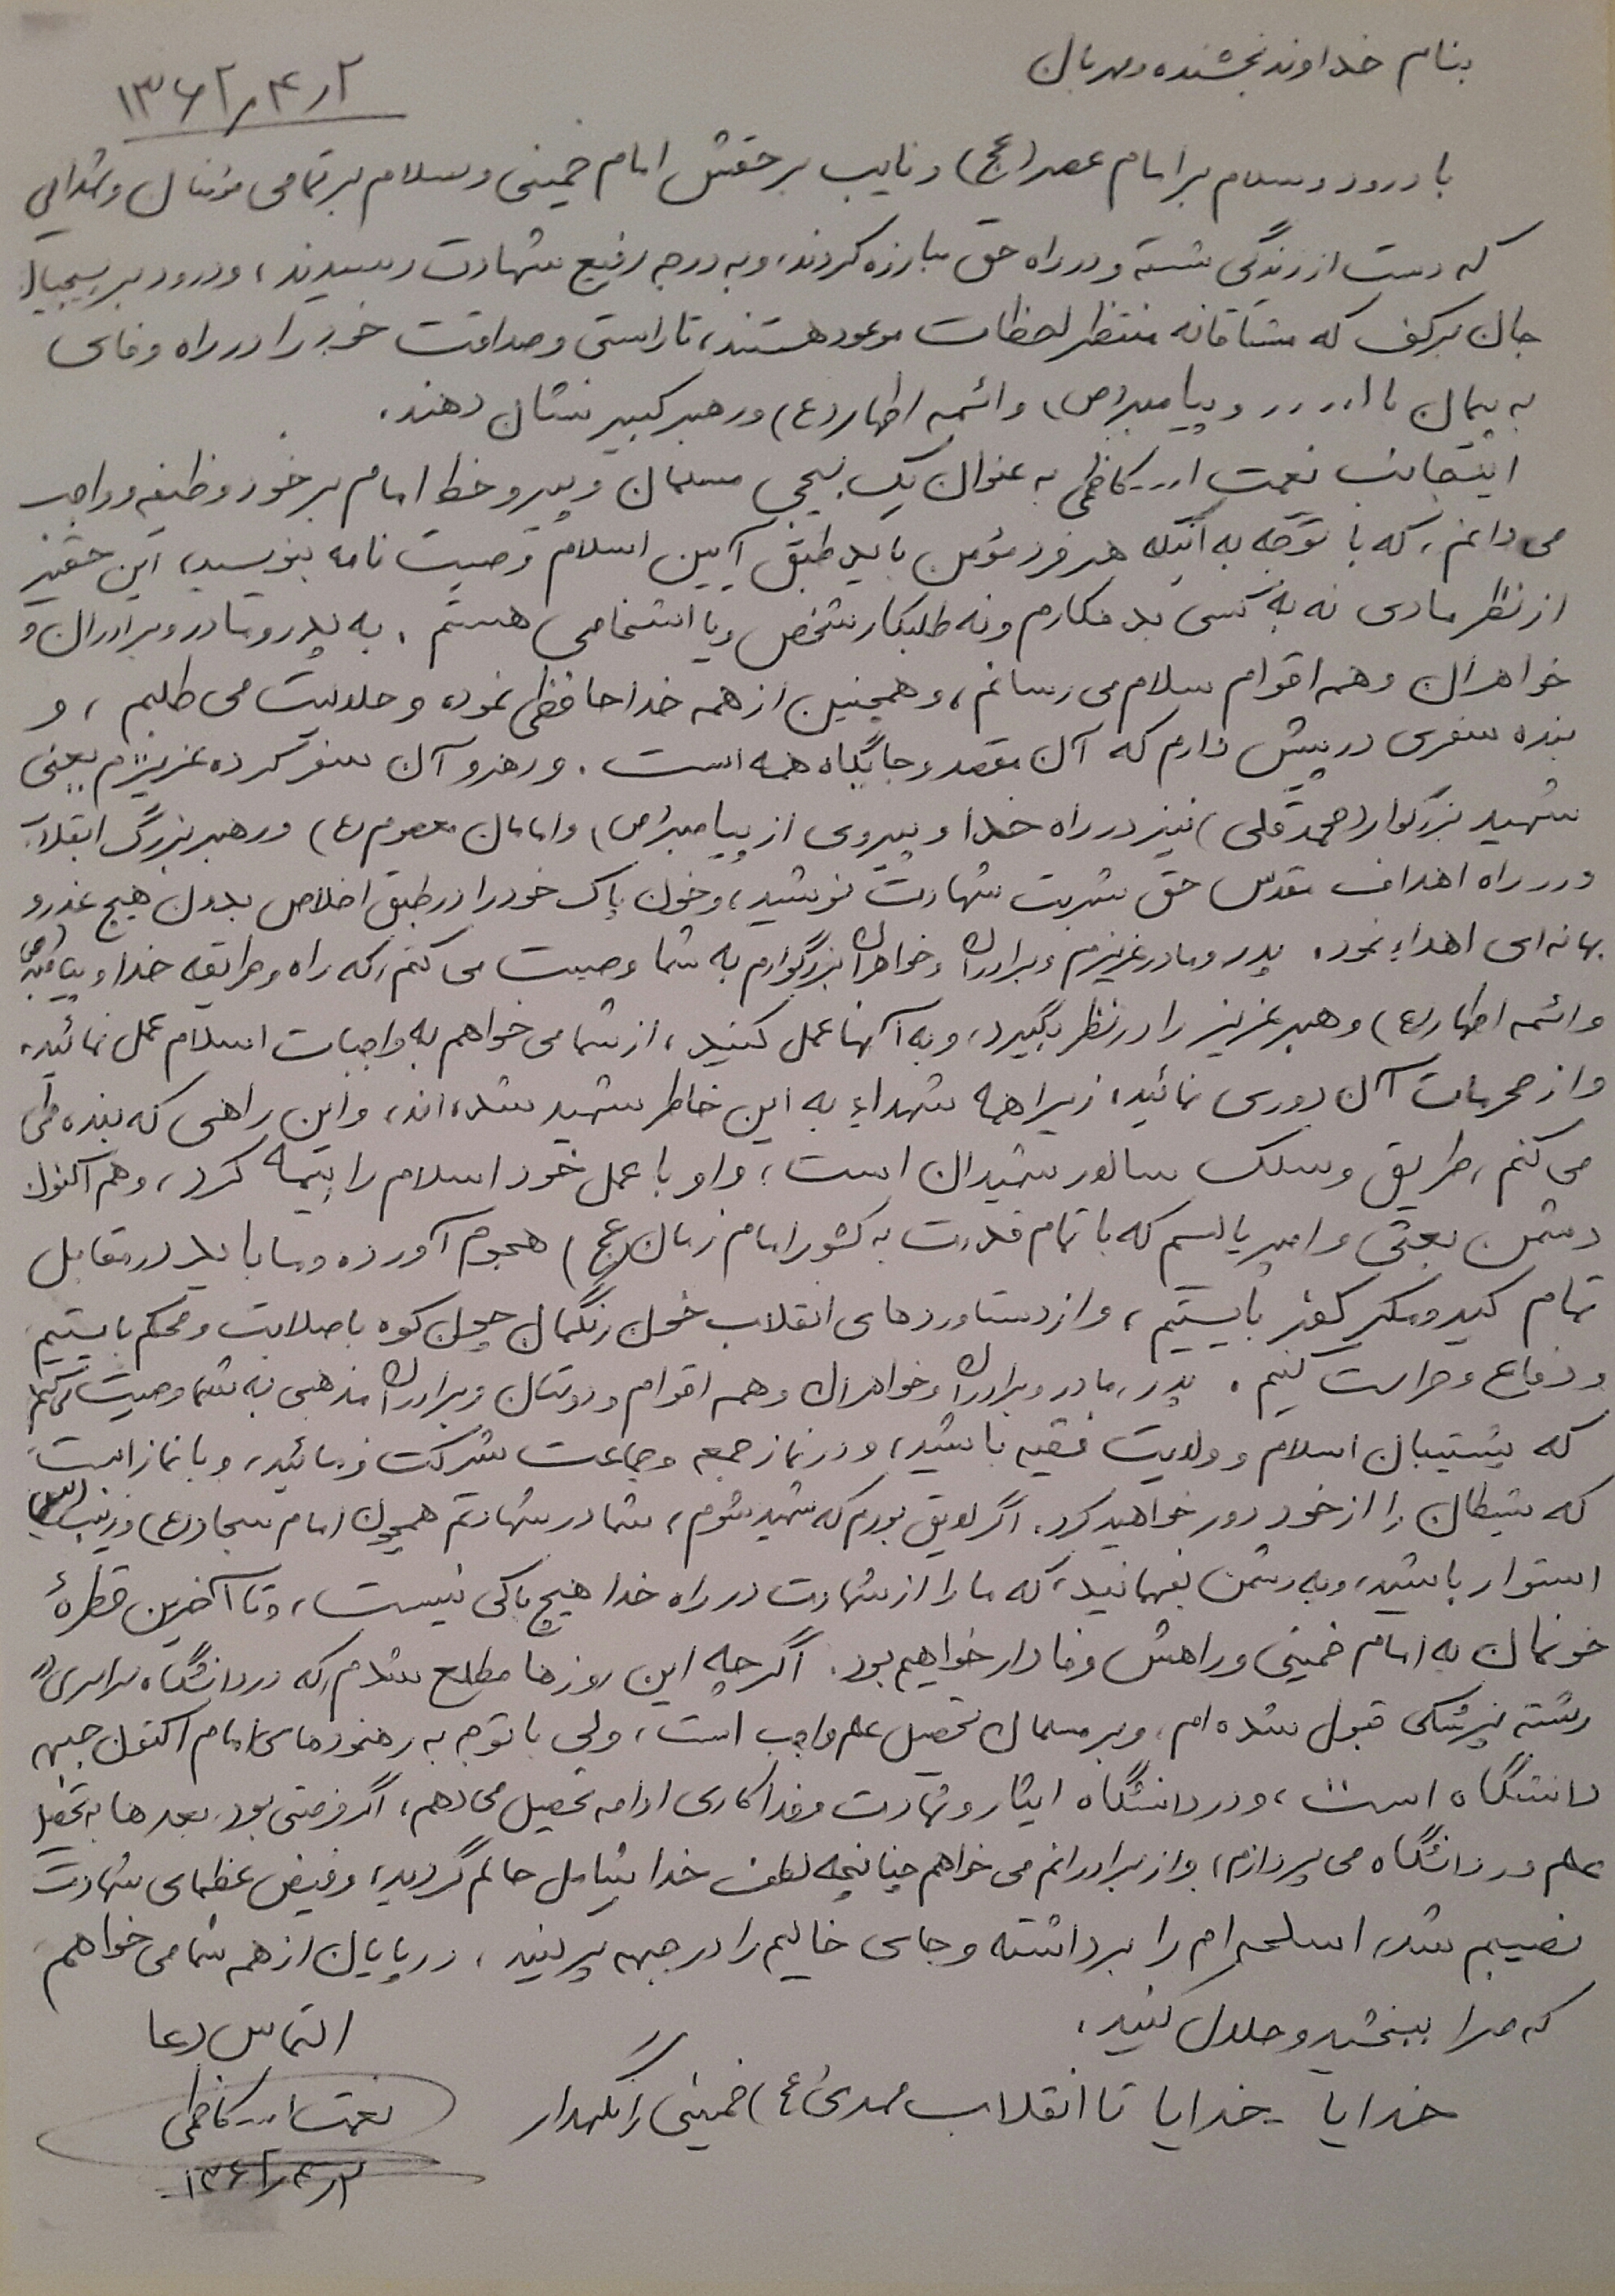 بنام خداوند بخشنده مهربان
۱۳۶۲٫۴٫۲
با درود و سلام بر امام عصر (عج) و نایب برحقش امام خمینی و سلام بر تمامی مؤمنان و شهدایی
که دست از زندگی شسته و در راه حق مبارزه کردند، و به درجه رفیع شهادت رسیدند، و درود بر بسیجیان
جان برکف که مشتاقانه منتظر لحظات موعود هستند، تا راستی و صداقت خود را در راه وفای
به پیمان با ا... و پیامبر (ص) و ائمه اطهار (ع) و رهبر کبیر نشان دهند.
اینجانب نعمت ا... کاظمی به عنوان یک بسیجی مسلمان و پیرو خط امام بر خود وظیفه و واجب
می دانم، که با توجه به اینکه هر فرد مؤمن باید طبق آیین اسلام وصیت نامه بنویسد، این حقیر
از نظر مادی نه به کسی بدهکارم و نه طلبکار شخص و یا اشخاصی هستم. به پدر و مادر و برادران و
خواهران و همه اقوام سلام می رسانم، و همچنین از همه خداحافظی نموده و حلالیت می طلبم، و
بنده سفری در پیش دارم که آن مقصد و جایگاه همه است. و رهرو آن سفر کرده عزیزم یعنی
شهید بزرگوار (محمدقلی) نیز در راه خدا و پیروی از پیامبر (ص) و امامان معصوم (ع) و رهبر بزرگ انقلاب
و در راه اهداف مقدس حق شربت شهادت نوشید، و خون پاک خود را در طبق اخلاص بدون هیچ عذر و
بهانه ای اهداء نمود. پدر و مادر عزیزم و برادران و خواهران بزرگوارم به شما وصیت می کنم، که راه و طریقه خدا و پیامبر (ص)
و ائمه اطهار (ع) و رهبر عزیز را در نظر بگیرد، و به آنها عمل کنید، از شما می خواهم به واجبات اسلام عمل نمائید،
و از محرمات آن دوری نمائید، زیرا همه شهداء به این خاطر شهید شده اند، و این راهی که بنده طی
می کنم، طریق و سلک سالار شهیدان است، و او با عمل خود اسلام را بیمه کرد، و هم اکنون
دشمن بعثی و امپریالیسم که با تمام قدرت به کشور امام زمان (عج) هجوم آورده و ما باید در مقابل
تمام کید و مکر کفر بایستیم، و از دستاوردهای انقلاب خون رنگمان چون کوه با صلابت و محکم بایستیم
و دفاع و حراست کنیم. پدر، مادر و برادران و خواهران و همه اقوام و دوستان و برادران مذهبی به شما وصیت می کنم
که پشتیبان اسلام و ولایت فقیه باشید، و در نماز جمعه و جماعت شرکت فرمائید، و با نماز است
که شیطان را از خود دور خواهید کرد. اگر لایق بودم که شهید شوم، شما در شهادتم همچون امام سجاد (ع) و زینب (س)
استوار باشید، و به دشمن بفهمانید، که ما را از شهادت در راه خدا هیچ باکی نیست، و تا آخرین قطرهٔ
خونمان به امام خمینی و راهش وفادار خواهیم بود. اگر چه این روزها مطلع شدم، که در دانشگاه سراسری در
رشته پزشکی قبول شده ام، و بر مسلمان تحصیل علم واجب است، ولی با توجه به رهنودهای امام اکنون جبهه
دانشگاه است، و در دانشگاه ایثار و شهادت و فداکاری ادامه تحصیل می دهم، اگر فرصتی بود بعدها به تحصیل
علم در دانشگاه می پردازم، و از برادرانم می خواهم چنانچه لطف خدا شامل حالم گردید، و فیض عظمای شهادت
نصیبم شد، اسلحه ام را برداشته و جای خالیم را در جبهه پر کنید، در پایان از همه شما می خواهم
که مرا ببخشید و حلال کنید.
التماس دعا
خدایا خدایا تا انقلاب مهدی (ع) خمینی را نگهدار
نعمت ا... کاظمی
۱۳۶۲٫۴٫۲